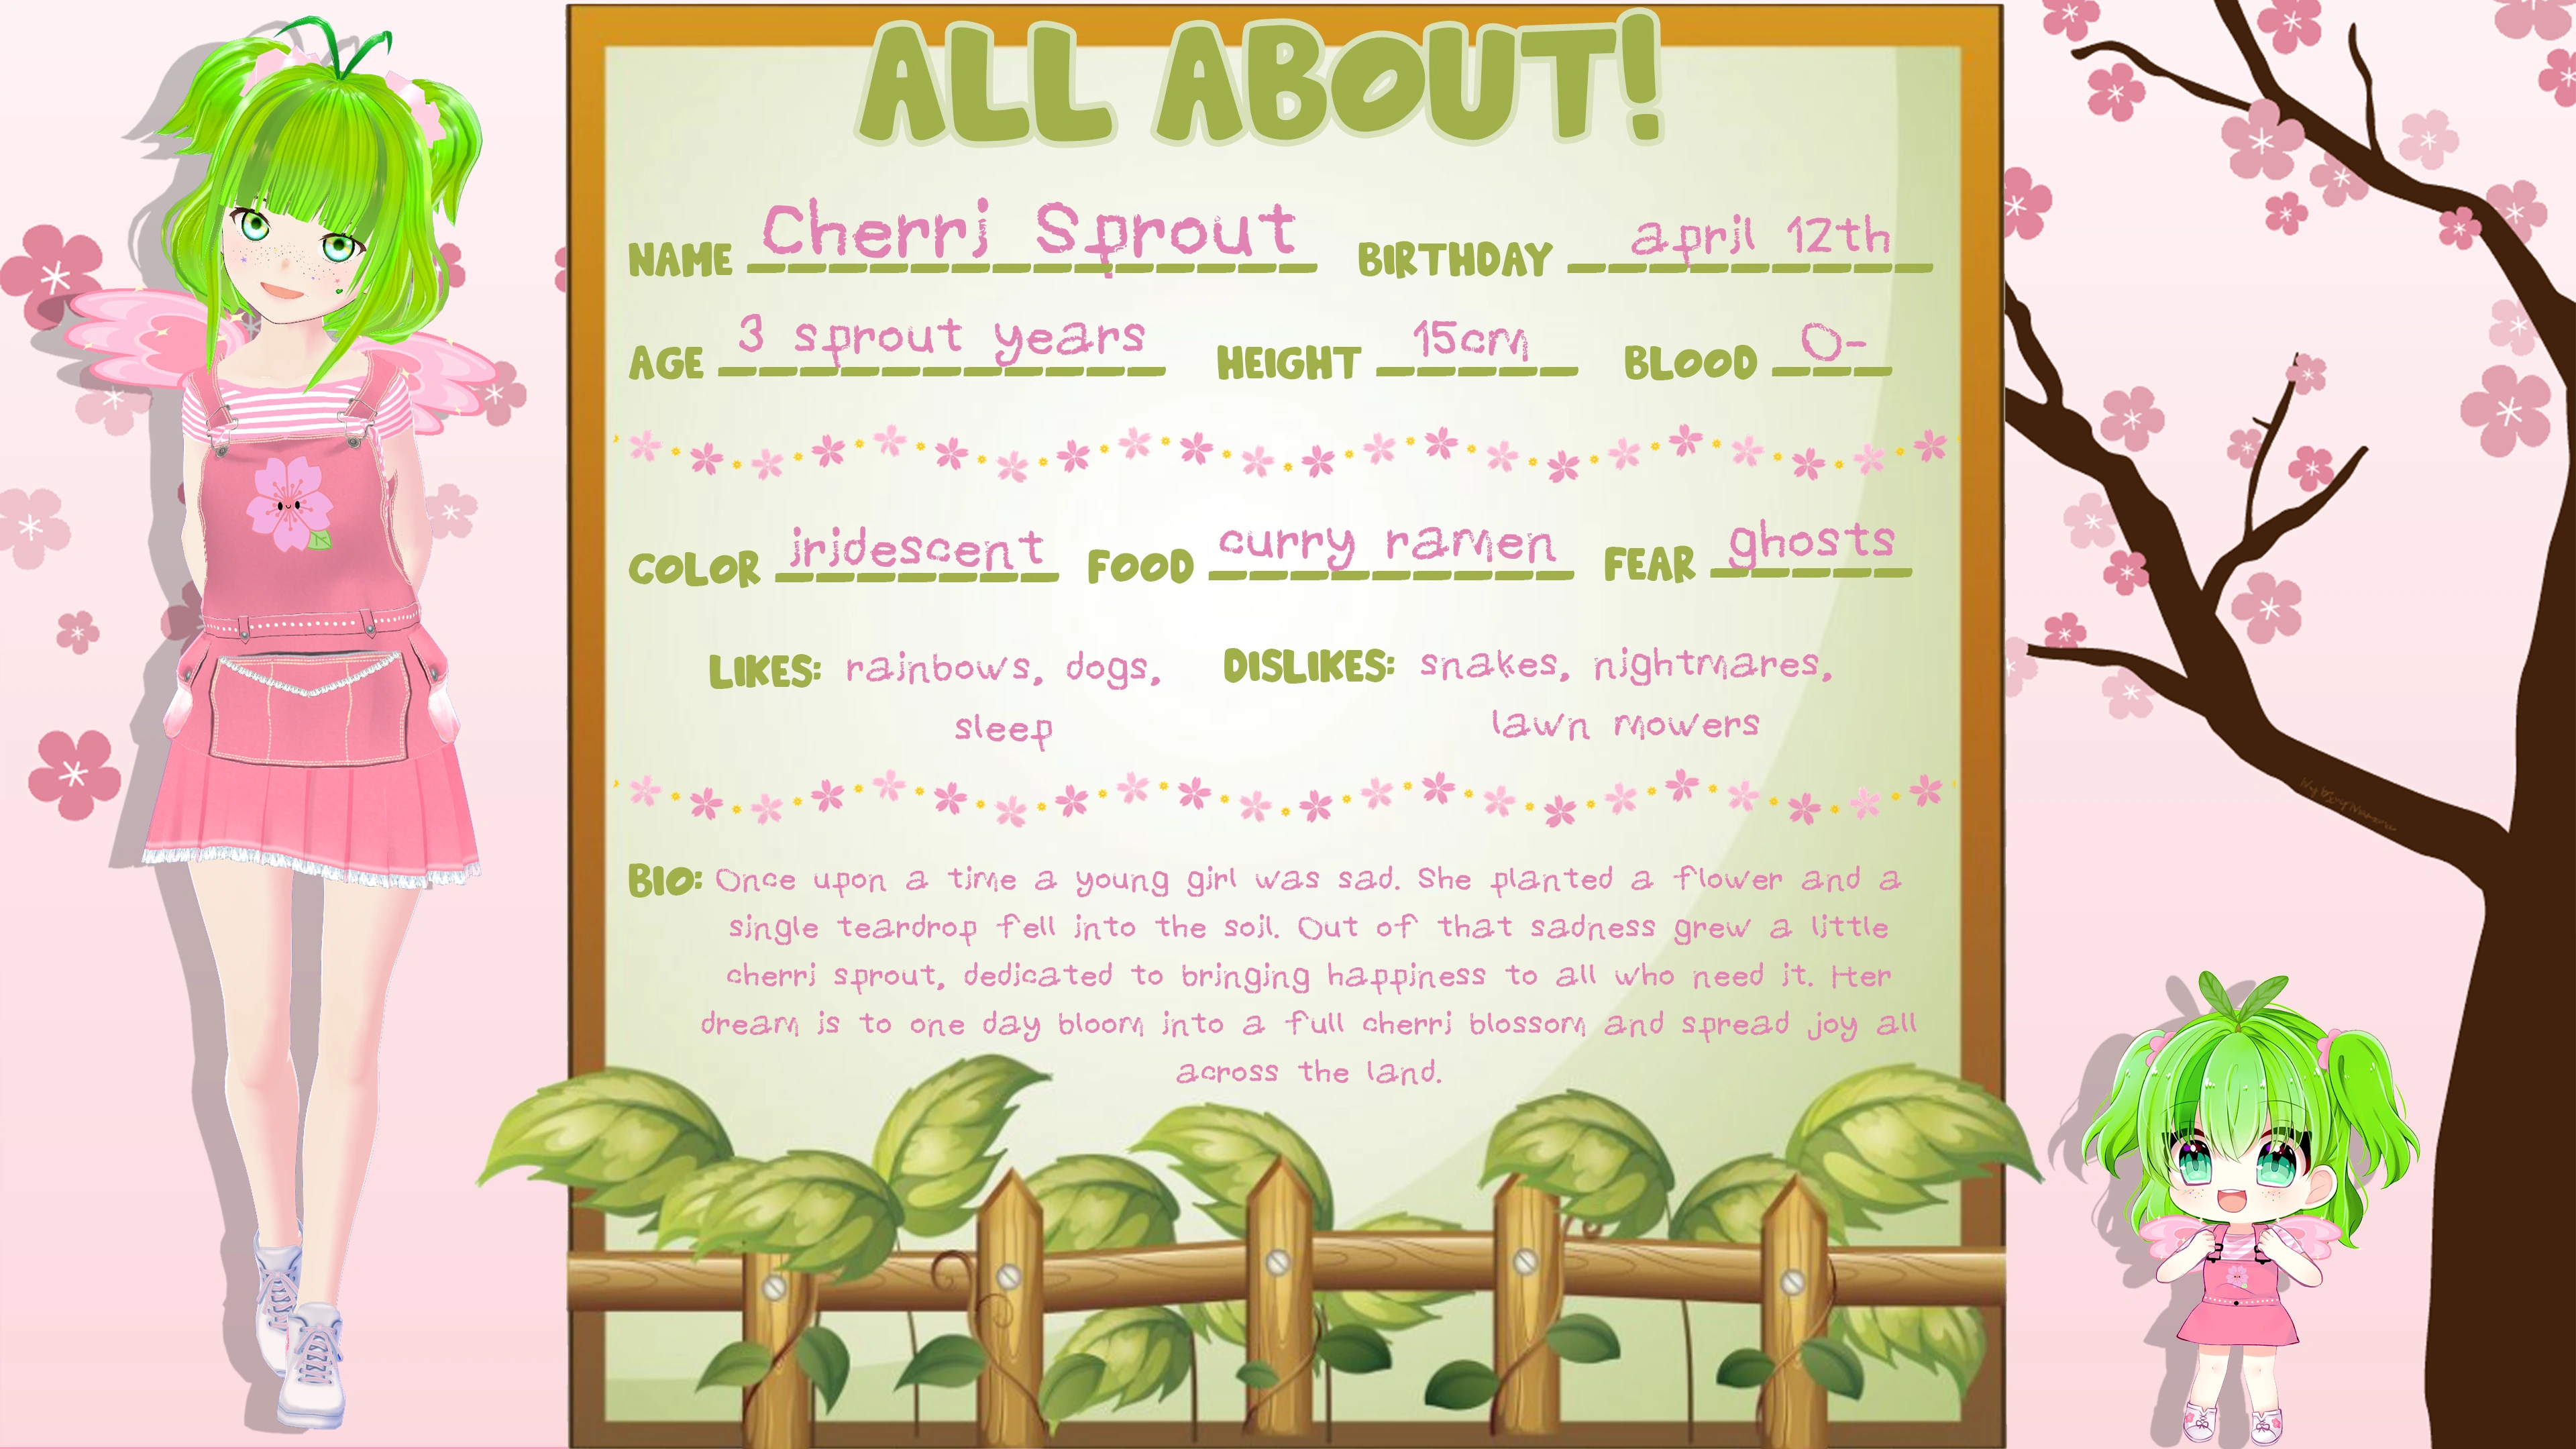 ALL ABOUT!
NAME Cherri Sprout BIRTHDAY april 12th
AGE 3 sprout years HEIGHT 15cm BLOOD O-
COLOR iridescent FOOD curry ramen FEAR ghosts
LIKES: rainbows, dogs, DISLIKES: snakes, nightmares,
sleep lawn mowers
BIO: Once upon a time a young girl was sad. She planted a flower and a
single teardrop fell into the soil. Out of that sadness grew a little
cherri sprout, dedicated to bringing happiness to all who need it. Her
dream is to one day bloom into a full cherri blossom and spread joy all
across the land.